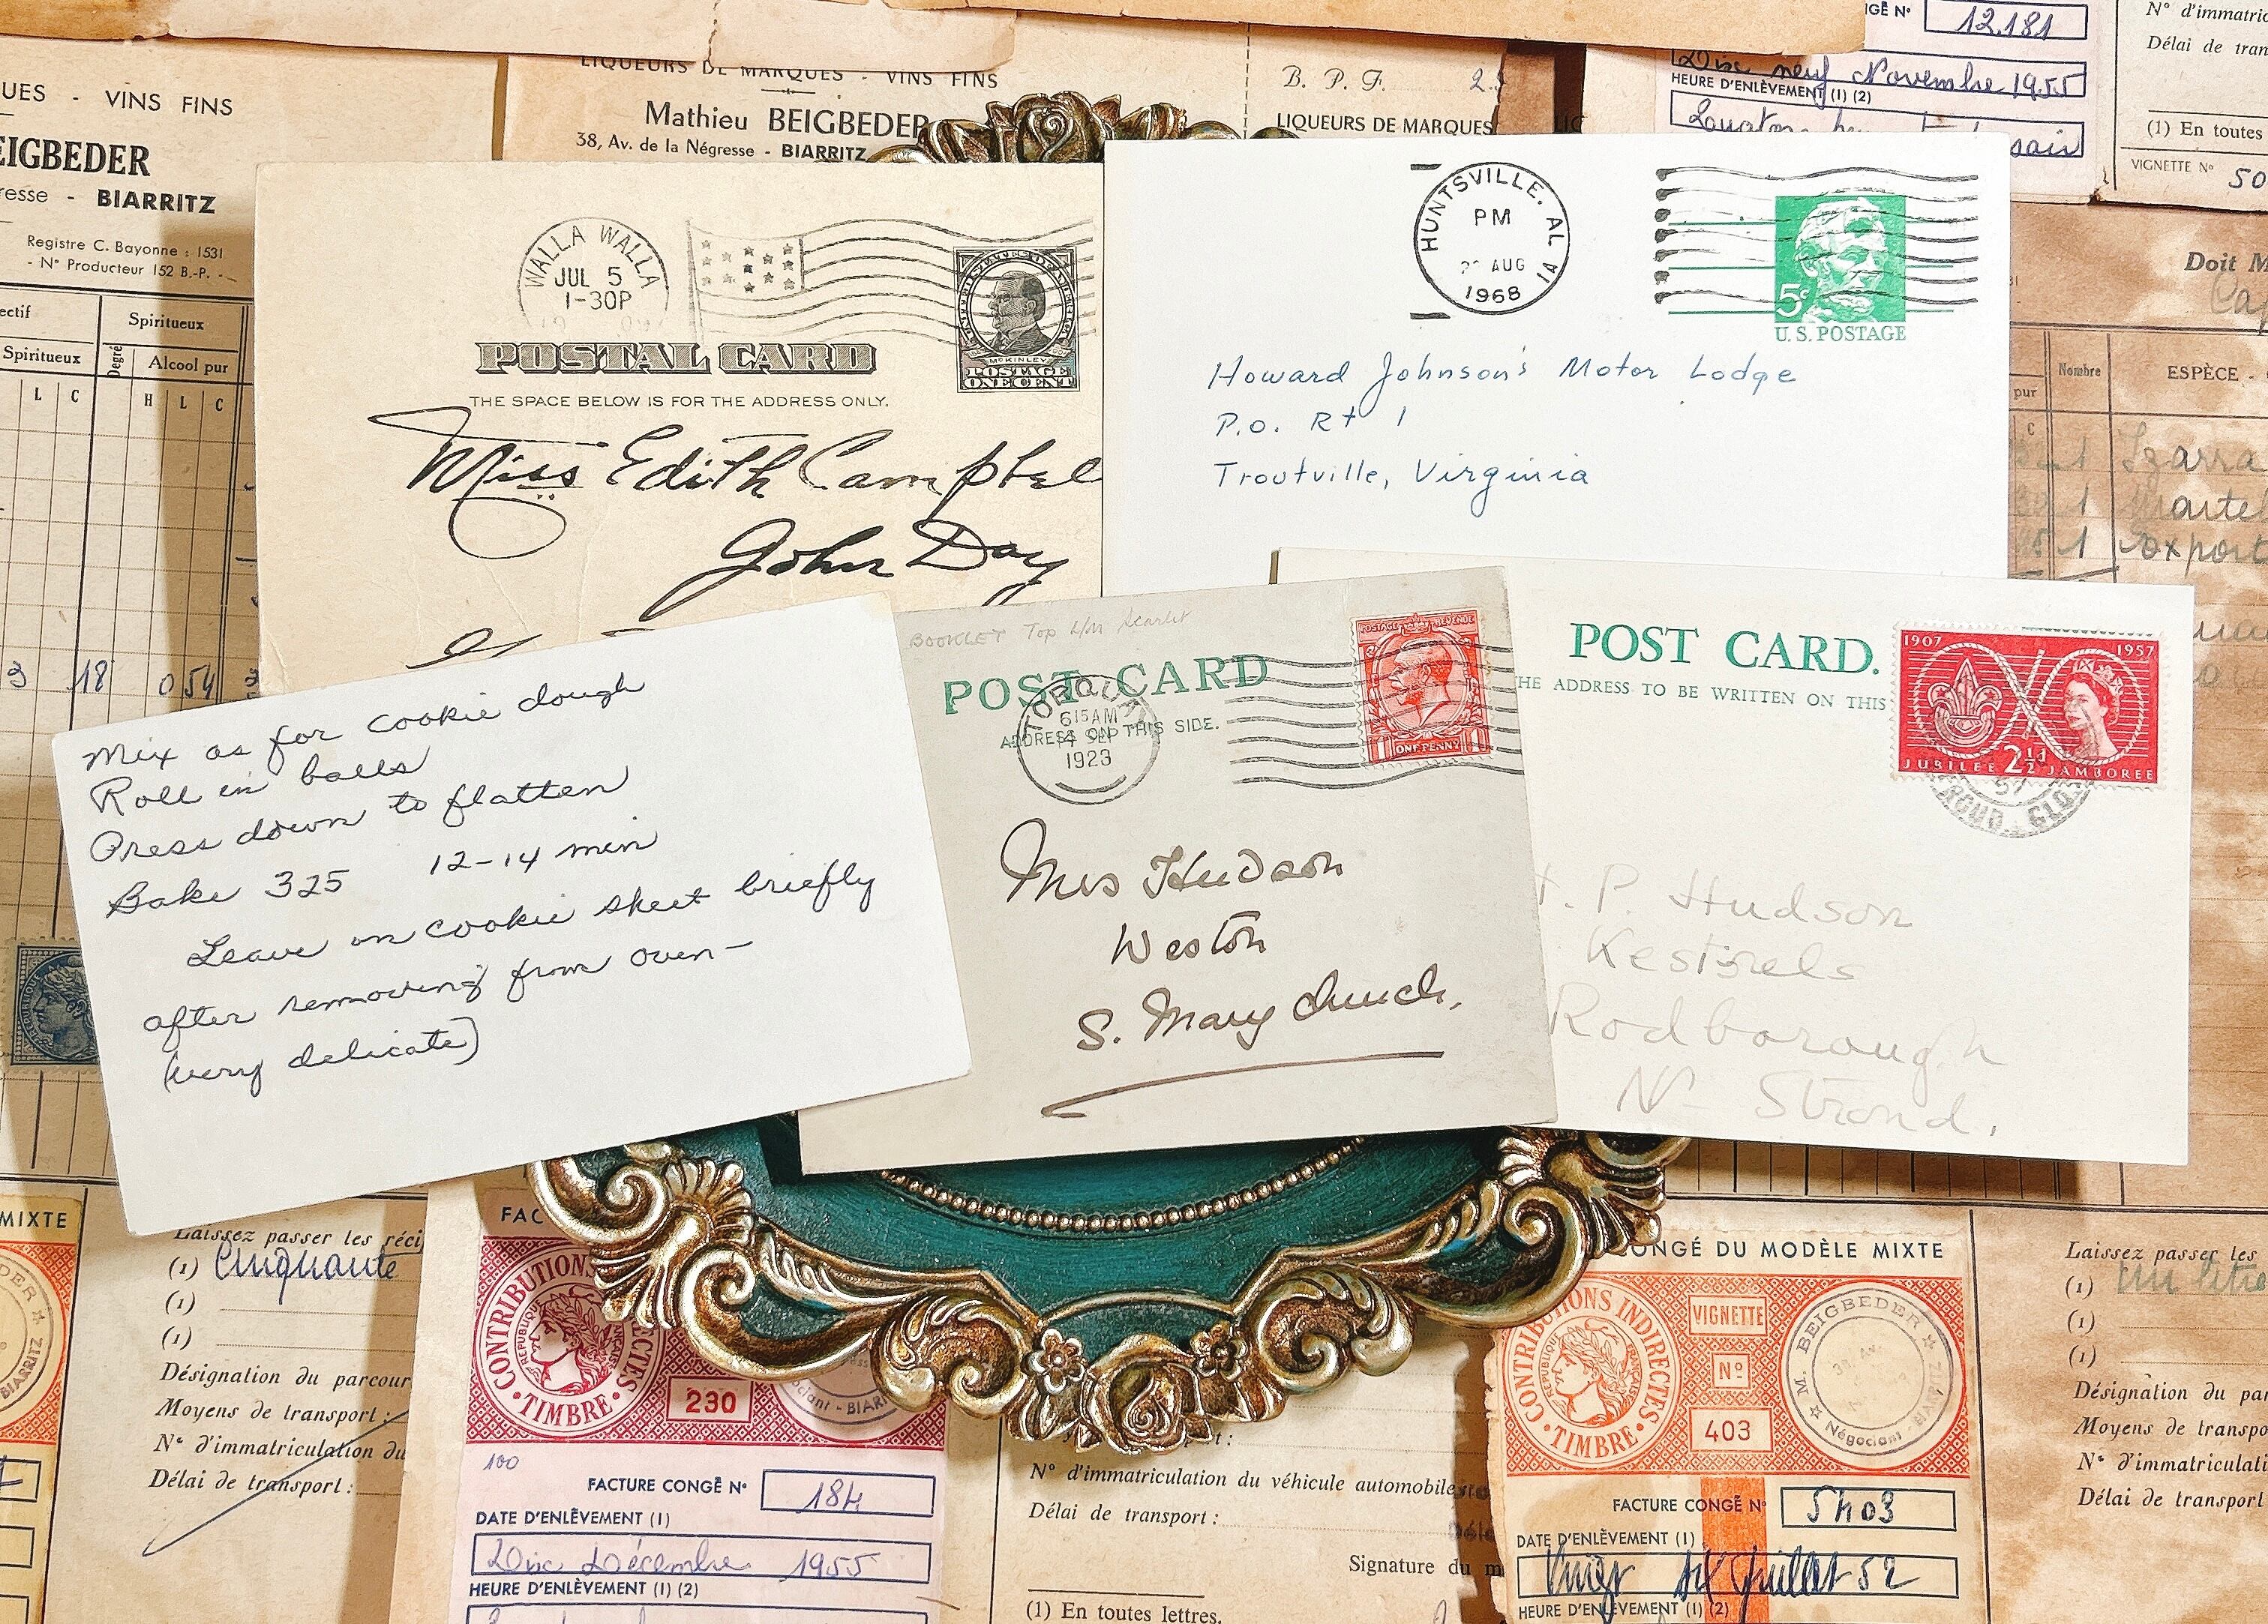 UES - VINS FINS
EIGBEDER
resse - BIARRITZ
Registre C. Bayonne : 1531
- Nº Producteur 152 B.-P. -
ectif
Spiritueux
Spiritueux
Degré
Alcool pur
L C
H L C
3 18 0 54
LIQUEURS DE MARQUES - VINS FINS
Mathieu BEIGBEDER
38, Av. de la Négresse - BIARRITZ
B. P. F.
LIQUEURS DE MARQUES
GÉ Nº 12.181
Dix neuf Novembre 1955
HEURE D'ENLÈVEMENT (1) (2)
Nº d'immatric
Délai de tran
(1) En toutes
VIGNETTE Nº 50
Doit M
Nombre
ESPÈCE -
pur
C
1 Izarra
1 Marte
1 export
WALLA WALLA
JUL 5
1-30P
POSTAL CARD
McKINLEY
POSTAGE
ONE CENT
THE SPACE BELOW IS FOR THE ADDRESS ONLY.
Miss Edith Campbel
John Day
HUNTSVILLE, AL
PM
AUG
1968
5¢
U.S. POSTAGE
Howard Johnson's Motor Lodge
P.O. Rt 1
Troutville, Virginia
Mix as for cookie dough
Roll in balls
Press down to flatten
Bake 325 12-14 min
Leave on cookie sheet briefly
after removing from oven-
(very delicate)
BOOKLET Top
Scarlet
POST CARD
ADDRESS ON THIS SIDE.
TORQUAY
6 15 AM
4 SEP
1923
POSTAGE REVENUE
ONE PENNY
Mrs Hudson
Weston
S. Mary Church,
POST CARD.
THE ADDRESS TO BE WRITTEN ON THIS
1907 1957
JUBILEE 2½d JAMBOREE
57
P. Hudson
Kestrels
Rodborough
Nr Stroud.
MIXTE
BIARRITZ
Laissez passer les réci
(1) Cinquante
(1)
(1)
Désignation du parcour
Moyens de transport :
Nº d'immatriculation du
Délai de transport :
FAC
CONTRIBUTIONS INDIRECTES
TIMBRE
230
100
FACTURE CONGÉ Nº 184
DATE D'ENLÈVEMENT (1)
Dix Décembre 1955
HEURE D'ENLÈVEMENT (1) (2)
Nº d'immatriculation du véhicule automobile
Délai de transport :
Signature du m
(1) En toutes lettres.
CONGÉ DU MODÈLE MIXTE
CONTRIBUTIONS INDIRECTES
TIMBRE
RÉPUBLIQUE FRANÇAISE
VIGNETTE
Nº
403
M. BEIGBEDER
Négociant - BIARRITZ
FACTURE CONGÉ Nº 5403
DATE D'ENLÈVEMENT (1)
Vingt six Juillet 52
HEURE D'ENLÈVEMENT (1) (2)
Laissez passer les
(1) un litre
(1)
(1)
Désignation du pa
Moyens de transpo
Nº d'immatriculati
Délai de transport